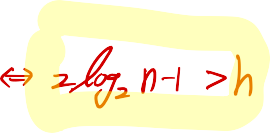 ⇔ 2 log₂ n-1 > h